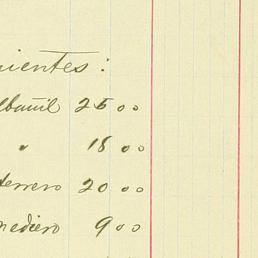 uientes:
lbañil 25 00
" 18 00
terrero 20 00
mediero 9 00